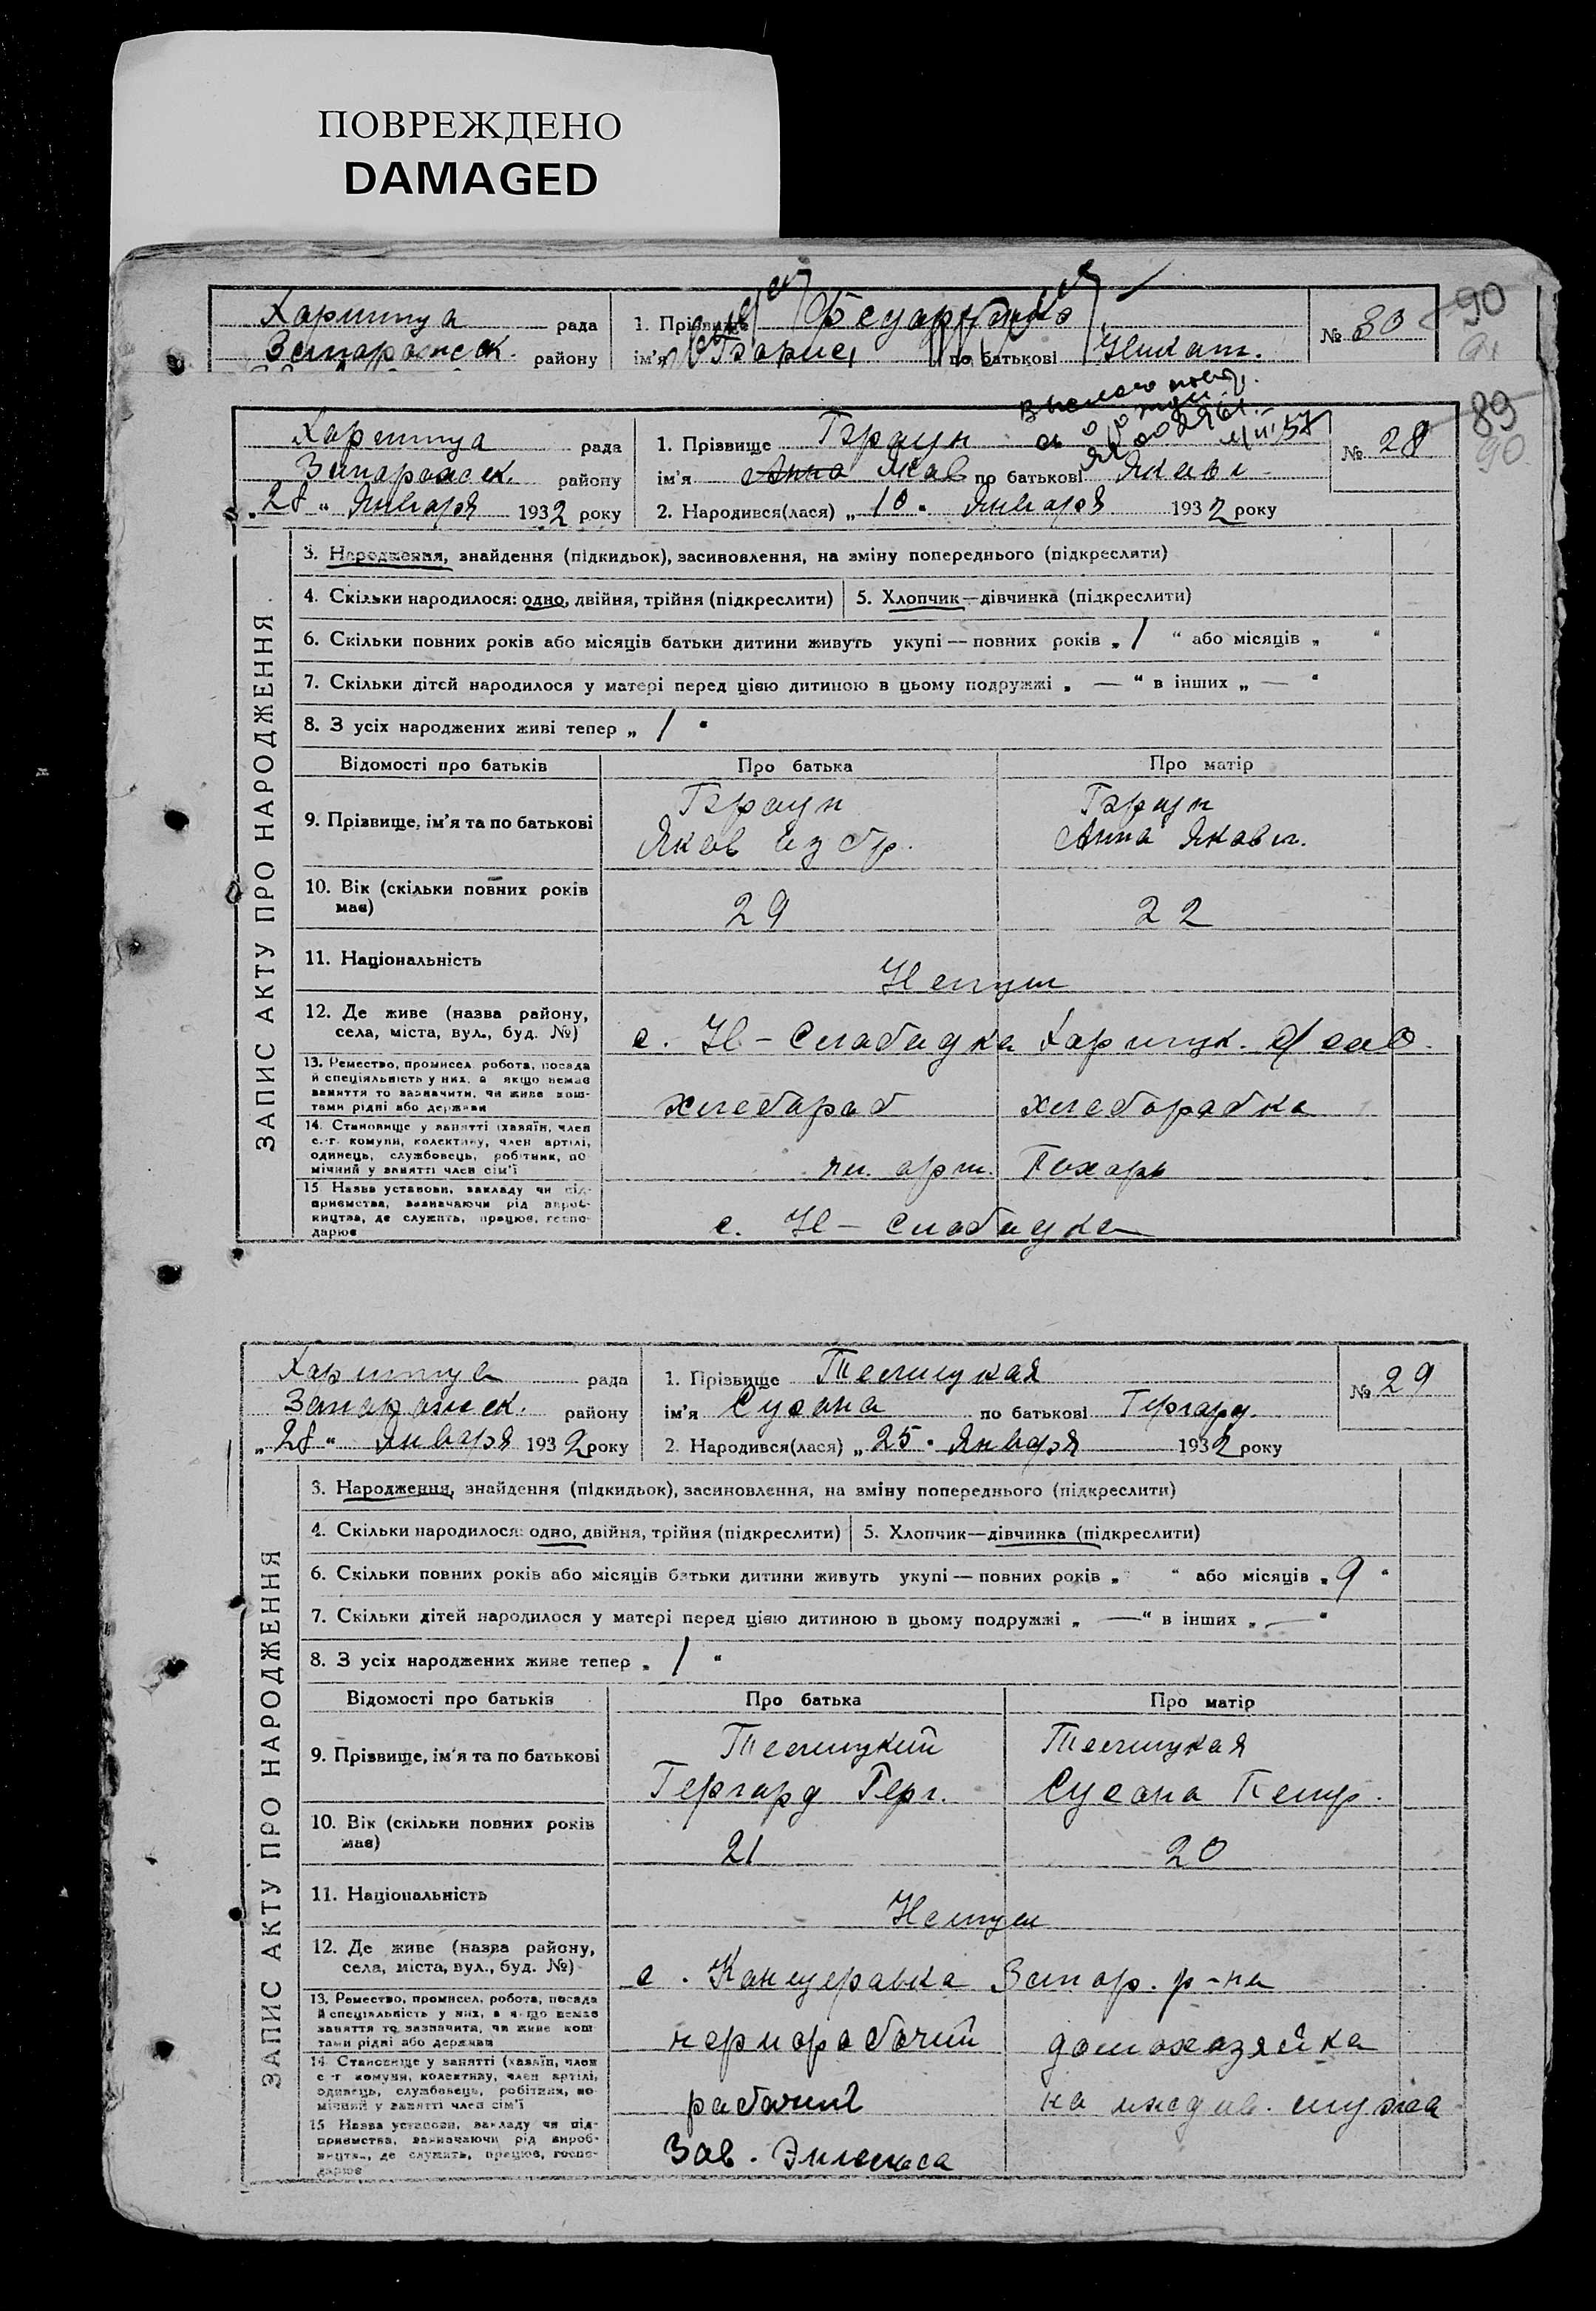 ПОВРЕЖДЕНО
DAMAGED
Хортица рада 1. Прізвище № 30 90
Запорожск. району ім'я по батькові Игнат. 91
89
Хортица рада 1. Прізвище Гэраун № 28 90
Запорожск. району ім'я Анна Яков по батькові Яковл
„28“ Января 1932 року 2. Народився(лася) „10“ Января 1932 року
ЗАПИС АКТУ ПРО НАРОДЖЕННЯ
3. Народження, знайдення (підкидьок), засиновлення, на зміну попереднього (підкреслити)
4. Скільки народилося: одно, двійня, трійня (підкреслити) 5. Хлопчик—дівчинка (підкреслити)
6. Скільки повних років або місяців батьки дитини живуть укупі — повних років „ 1 “ або місяців „ “
7. Скільки дітей народилося у матері перед цією дитиною в цьому подружжі „ — “ в інших „ — “
8. З усіх народжених живі тепер „ 1 “
Відомості про батьків Про батька Про матір
9. Прізвище, ім'я та по батькові Гэраун Гэраун
Яков Избр. Анна Яковл.
10. Вік (скільки повних років має) 29 22
11. Національність Немцы
12. Де живе (назва району, села, міста, вул., буд. №) с. Н-Слободка Хортицк.
13. Ремество, промисел, робота, посада й спеціяльність у них, а якщо немає заняття то зазначити, чи живе коштами рідні або держави хлебороб хлеборобка
14. Становище у занятті (хазяїн, член с.-г. комуни, колективу, член артілі, одинець, службовець, робітник, помічний у занятті член сім'ї чл. арт. Пахарь
15 Назва установи, закладу чи підприємства, зазначаючи рід виробництва, де служить, працює, господарює с. Н-Слободка
Хортица рада 1. Прізвище Телицкая № 29
Запорожск. району ім'я Сузана по батькові Гергард.
„28“ Января 1932 року 2. Народився(лася) „25“ Января 1932 року
ЗАПИС АКТУ ПРО НАРОДЖЕННЯ
3. Народження, знайдення (підкидьок), засиновлення, на зміну попереднього (підкреслити)
4. Скільки народилося: одно, двійня, трійня (підкреслити) 5. Хлопчик—дівчинка (підкреслити)
6. Скільки повних років або місяців батьки дитини живуть укупі — повних років „ “ або місяців „ 9 “
7. Скільки дітей народилося у матері перед цією дитиною в цьому подружжі „ — “ в інших „ — “
8. З усіх народжених живе тепер „ 1 “
Відомості про батьків Про батька Про матір
9. Прізвище, ім'я та по батькові Телицкий Телицкая
Гергард Герг. Сусана Петр.
10. Вік (скільки повних років має) 21 20
11. Національність Немцы
12. Де живе (назва району, села, міста, вул., буд. №) с. Канцеровка Запор. р-на
13. Ремество, промисел, робота, посада й спеціяльність у них, а якщо немає заняття то зазначити, чи живе коштами рідні або держави чернорабочий домохозяйка
14 Становище у занятті (хазяїн, член с-г комуни, колективу, член артілі, одинець, службовець, робітник, помічний у занятті член сім'ї рабочий на иждив. мужа
15 Назва установи, закладу чи підприємства, зазначаючи рід виробництва, де служить, працює, господарює Зав. Энгельса